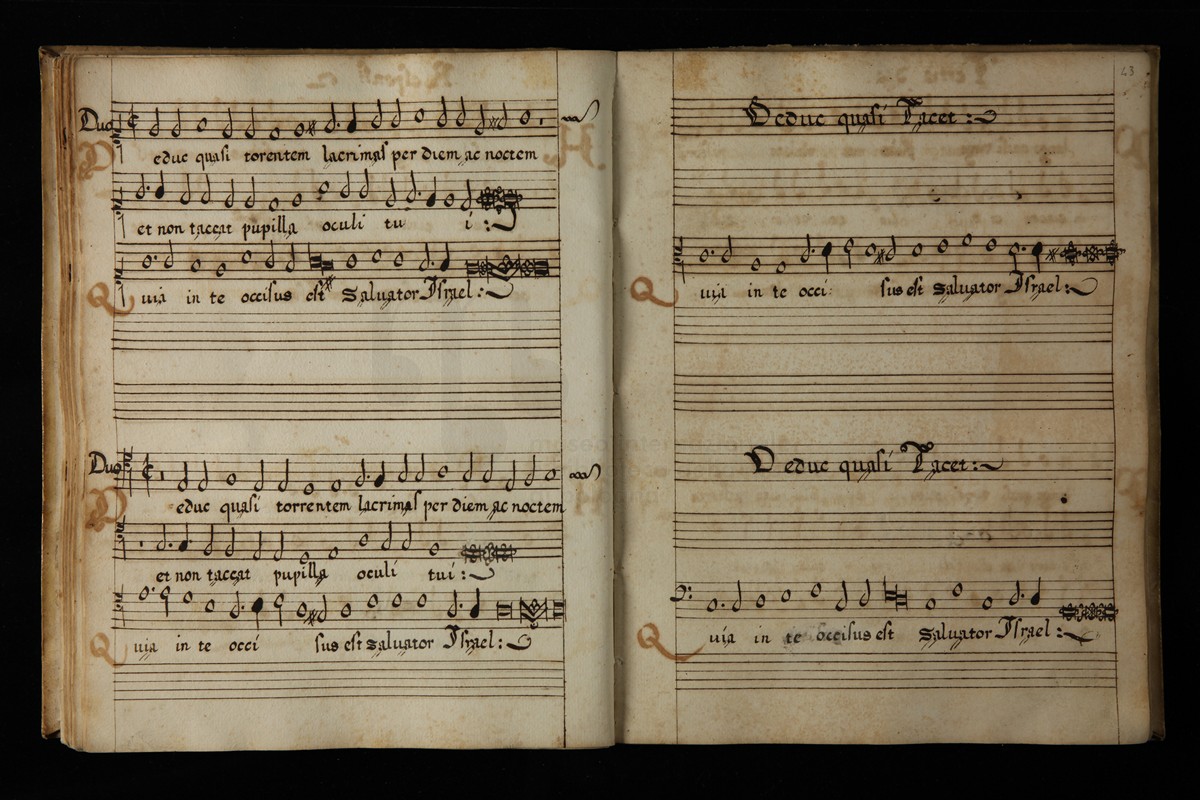 Duo
Deduc quasi torentem lacrimas per diem ac noctem
et non taceat pupilla oculi tu i :
Quia in te occisus est Salvator Israel :
Duo
Deduc quasi torrentem lacrimas per diem ac noctem
et non taceat pupilla oculi tui :
Quia in te occi sus est Salvator Israel :
43
Deduc quasi Tacet :
Quia in te occi: sus est Salvator Israel :
Deduc quasi Tacet :
Quia in te occisus est Salvator Israel :